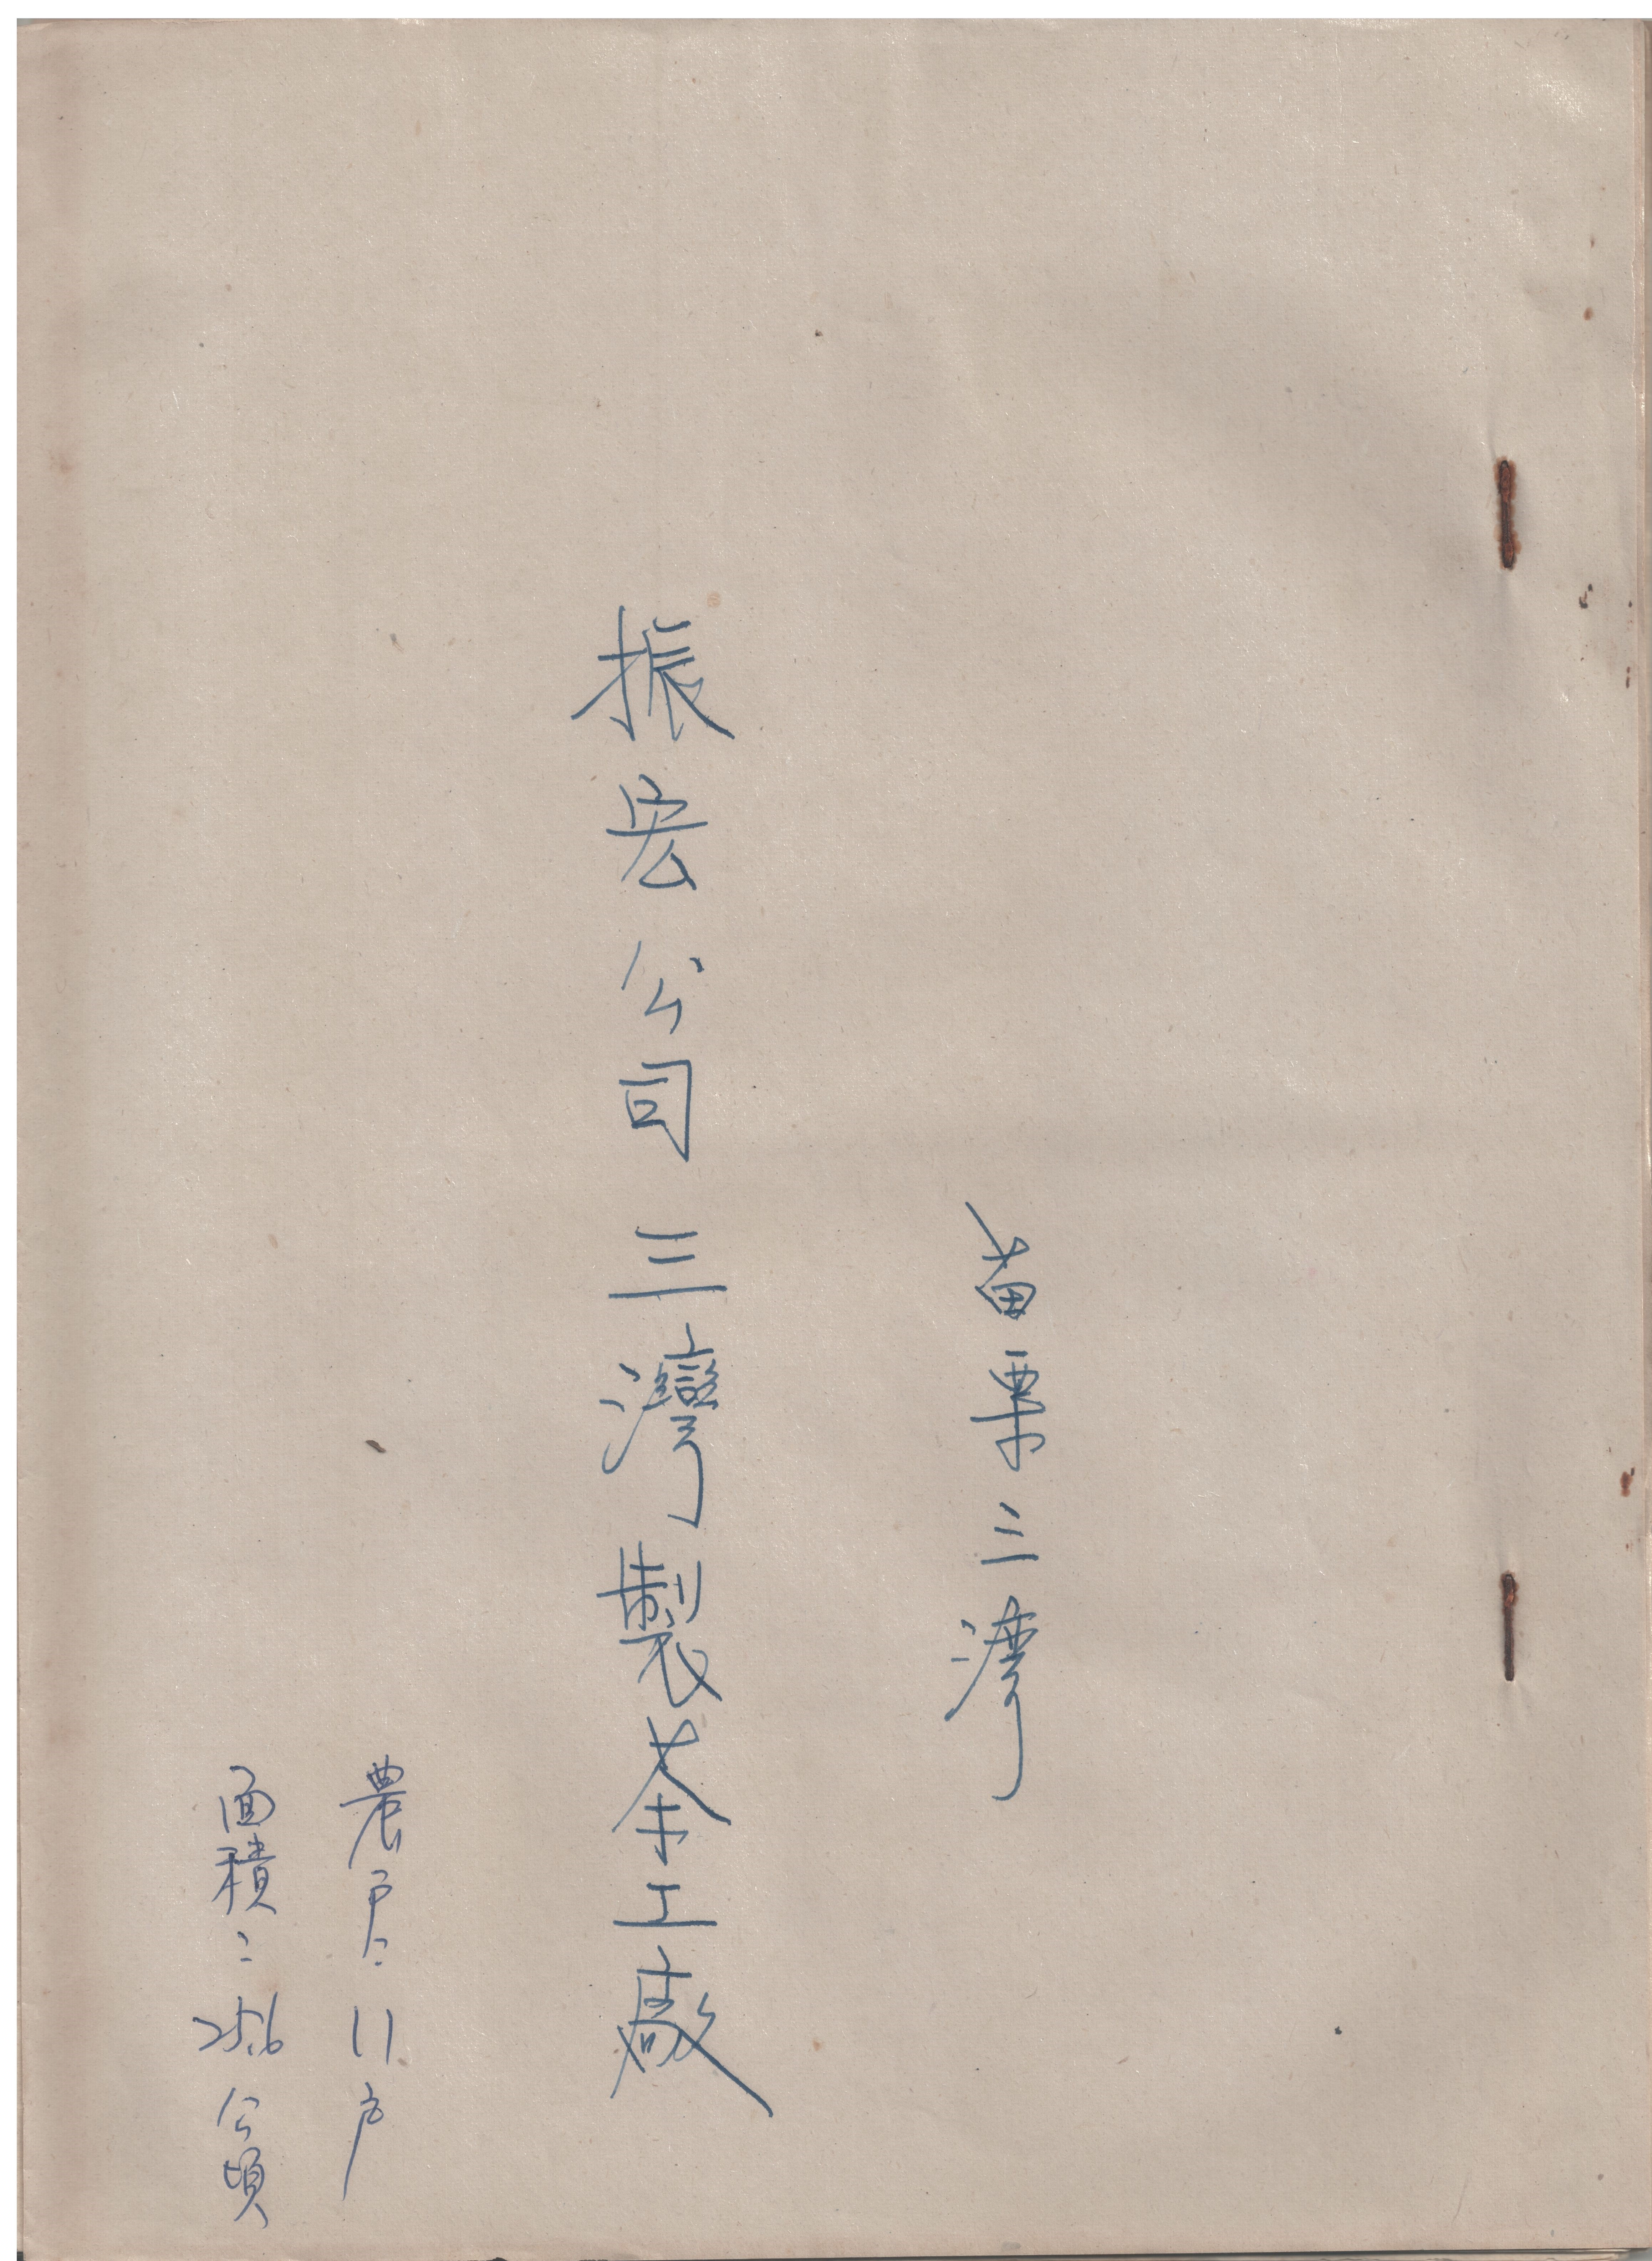 苗栗三灣
振宏公司三灣製茶工廠
農戶：11戶
面積：25.6公頃